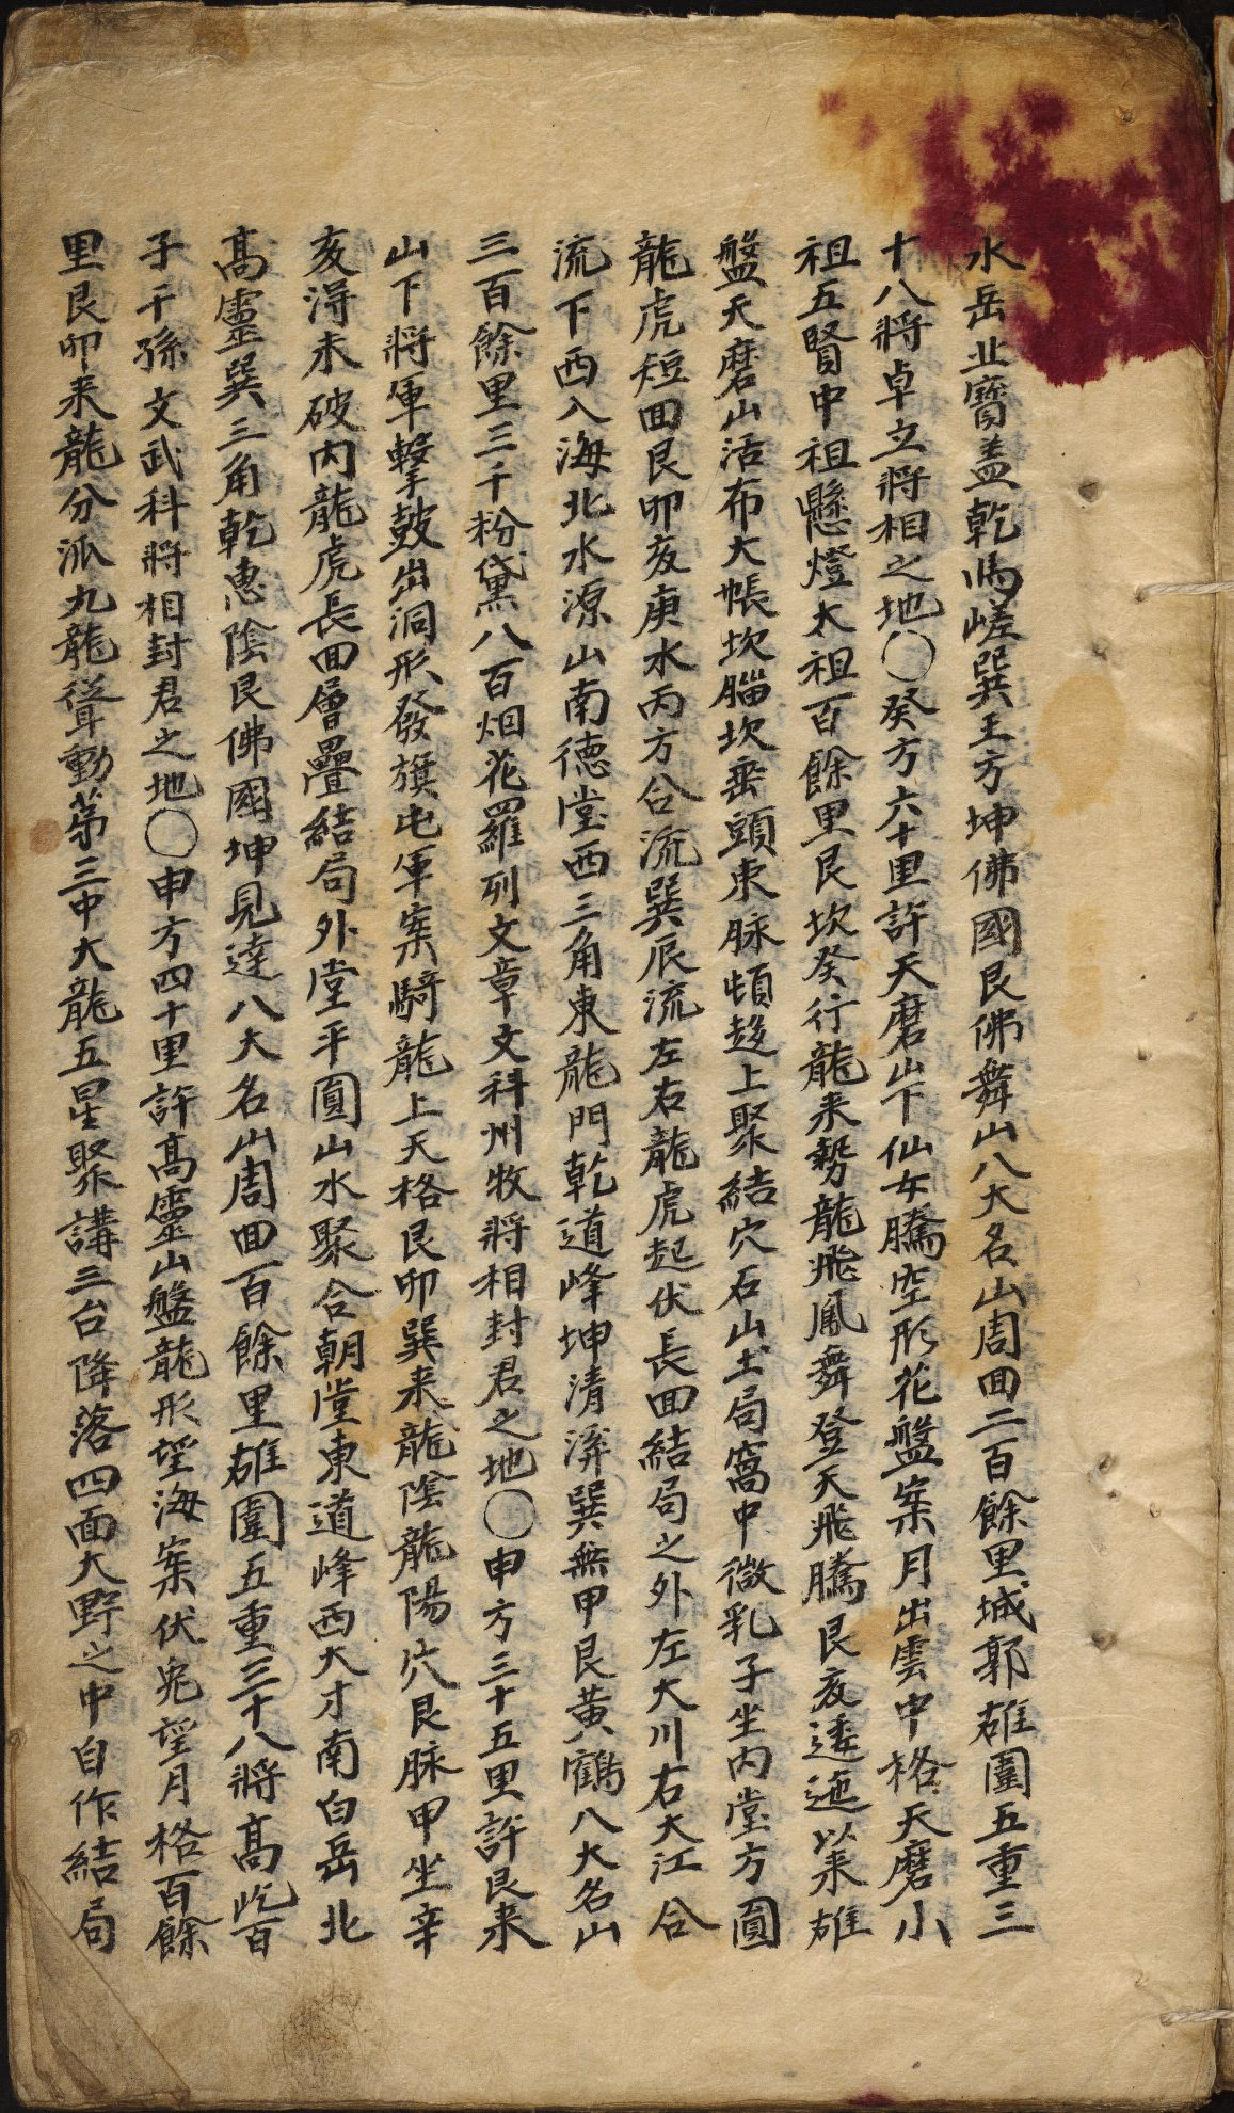 水岳北寶盖乾馬嵯巽王方坤佛國艮佛舞山八大名山周回二百餘里城郭雄圍五重三
十八將卓立將相之地○癸方六十里許天磨山下仙女騰空形花盤案月出雲中格天磨小
祖五賢中祖懸燈太祖百餘里艮坎癸行龍来勢龍飛鳳舞登天飛騰艮亥逶迤以来雄
盤天磨山活布大帳坎腦坎垂頭東脉頓起上聚結穴石山土局窩中微乳子坐內堂方圓
龍虎短回艮卯亥庚水丙方合流巽辰流左右龍虎起伏長回結局之外左大川右大江合
流下西入海北水源山南德堂西三角東龍門乾道峰坤清溪巽無甲艮黃鶴八大名山
三百餘里三千粉黛八百烟花羅列文章文科州牧將相封君之地○申方三十五里許艮来
山下將軍擊鼓出洞形發旗屯軍案騎龍上天格艮卯巽来龍陰龍陽穴艮脉甲坐辛
亥淂未破内龍虎長回層疊結局外堂平圓山水聚合朝堂東道峰西大才南白岳北
高靈巽三角乾惠陰艮佛國坤見達八大名山周回百餘里雄圍五重三十八將高屹百
子千孫文武科將相封君之地○申方四十里許高靈山盤龍形望海案伏兔望月格百餘
里艮卯来龍分派九龍聳動第三中大龍五星聚講三台降落四面大野之中自作結局